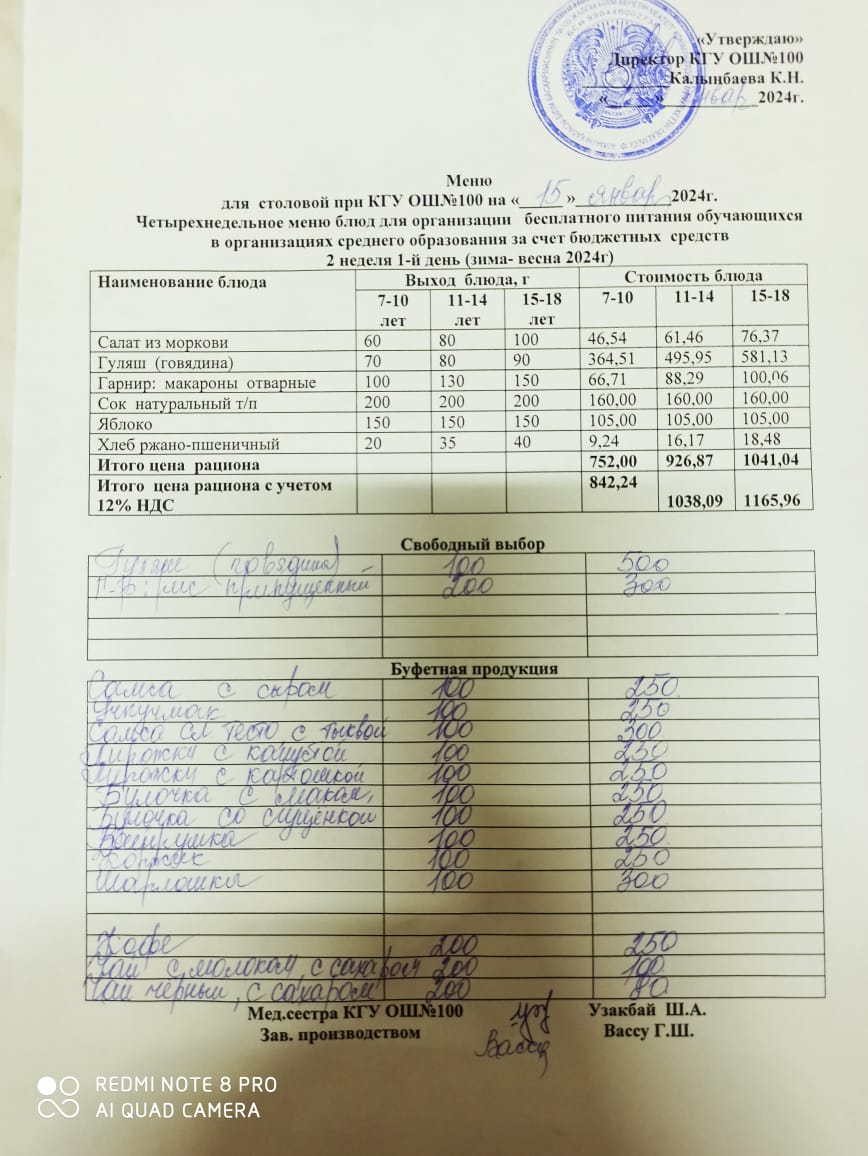 «Утверждаю»
Директор КГУ ОШ№100
__________Калынбаева К.Н.
«______»___январ____2024г.
Меню
для столовой при КГУ ОШ№100 на «__15__»__январ______2024г.
Четырехнедельное меню блюд для организации бесплатного питания обучающихся
в организациях среднего образования за счет бюджетных средств
2 неделя 1-й день (зима- весна 2024г)
Наименование блюда Выход блюда, г Стоимость блюда
7-10 лет 11-14 лет 15-18 лет 7-10 11-14 15-18
Салат из моркови 60 80 100 46,54 61,46 76,37
Гуляш (говядина) 70 80 90 364,51 495,95 581,13
Гарнир: макароны отварные 100 130 150 66,71 88,29 100,06
Сок натуральный т/п 200 200 200 160,00 160,00 160,00
Яблоко 150 150 150 105,00 105,00 105,00
Хлеб ржано-пшеничный 20 35 40 9,24 16,17 18,48
Итого цена рациона 752,00 926,87 1041,04
Итого цена рациона с учетом 842,24
12% НДС 1038,09 1165,96
Свободный выбор
Гуляш (говядина) 100 500
Г-р: рис припущенный 200 300
Буфетная продукция
Самса с сыром 100 250
Учпучмак 100 250
Самса сл тесто с тыквой 100 300
Пирожки с капустой 100 250
Пирожки с картошкой 100 250
Булочка с маком, 100 250
Булочка со сгущёнкой 100 250
Ватрушка 100 250
Коржик 100 250
100 300
Кофе 200 250
Чай с молоком, с сахаром 200 100
Чай черный, с сахаром 200 80
Мед.сестра КГУ ОШ№100 Узакбай Ш.А.
Зав. производством Вассу Вассу Г.Ш.
REDMI NOTE 8 PRO
AI QUAD CAMERA